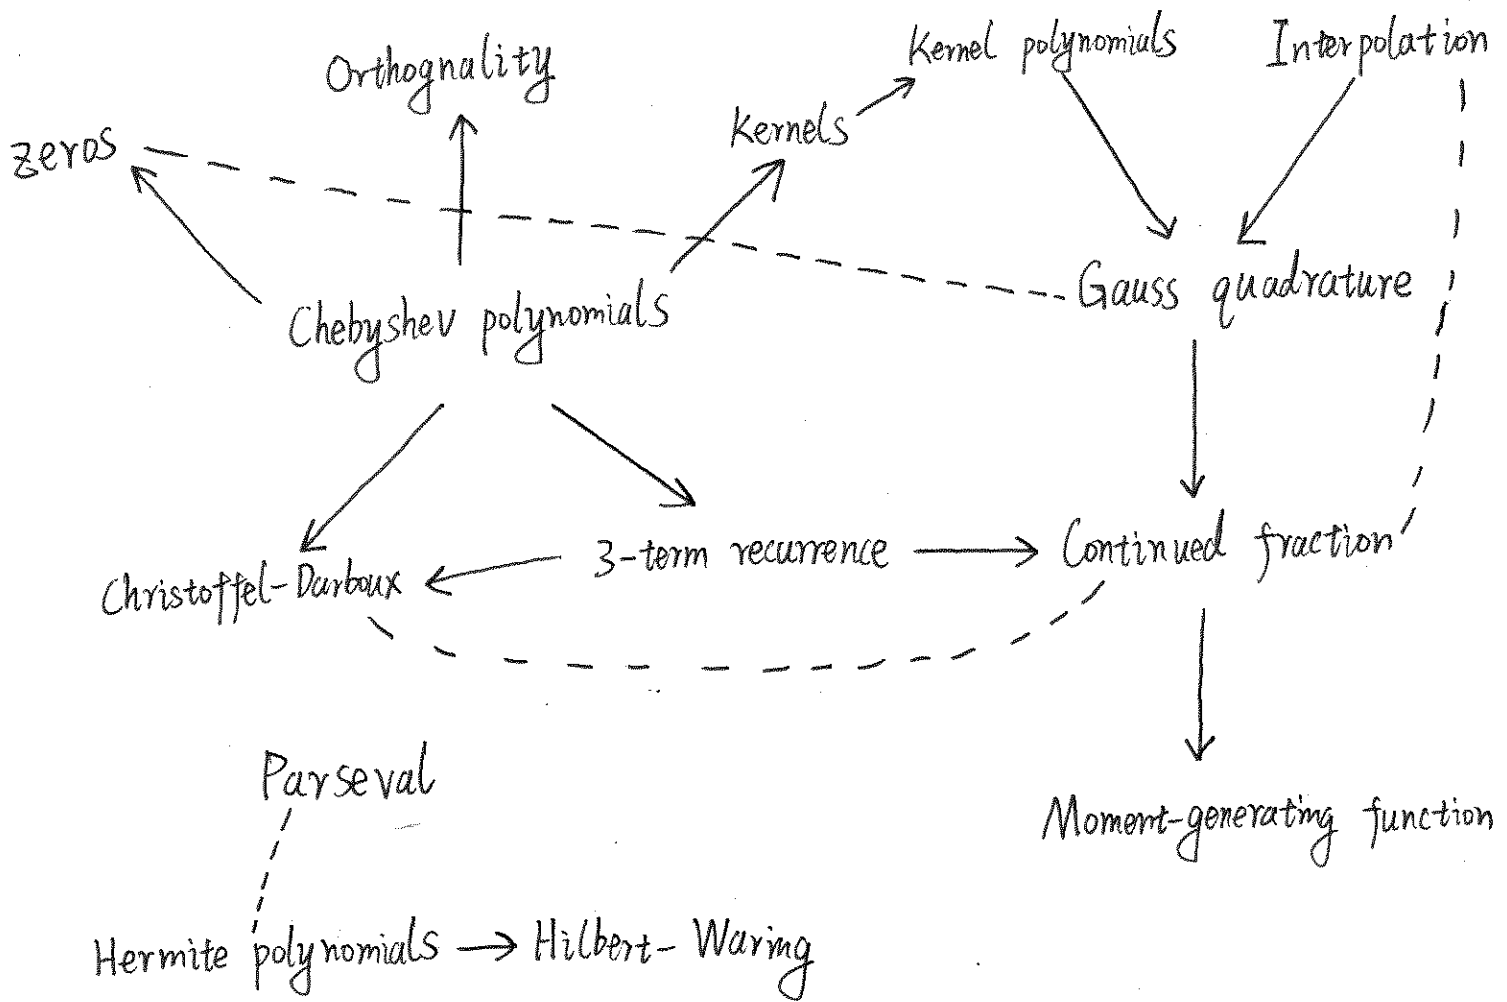 Orthognality
Kernel polynomials
Interpolation
zeros
Kernels
Chebyshev polynomials
Gauss quadrature
Christoffel-Darboux
3-term recurrence
Continued fraction
Parseval
Moment-generating function
Hermite polynomials
Hilbert-Waring